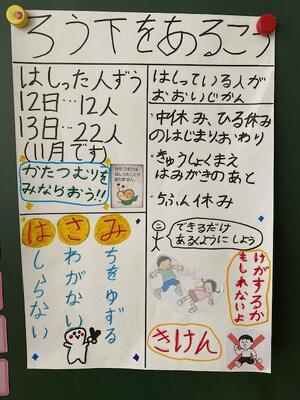 ろう下をあるこう
はしった人ずう
12日…12人
13日…22人
(11月です)
かたつむりを
みならおう!!
かたつむりは
はしったことが
ありません。
はさみ
みちをゆずる
さわがない
はしらない
はしっている人が
おおいじかん
・中休み、ひる休み
のはじまりおわり
・きゅうしょくまえ
はみがきのあと
・5ふん休み
できるだけ
あるくようにしよう
けがするか
もしれないよ
きけん